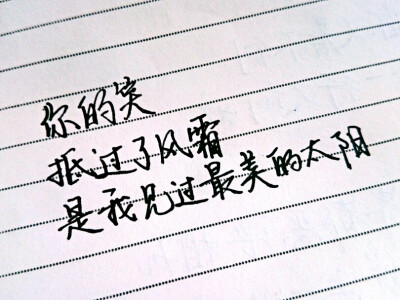 你的笑
抵过了风霜
是我见过最美的太阳